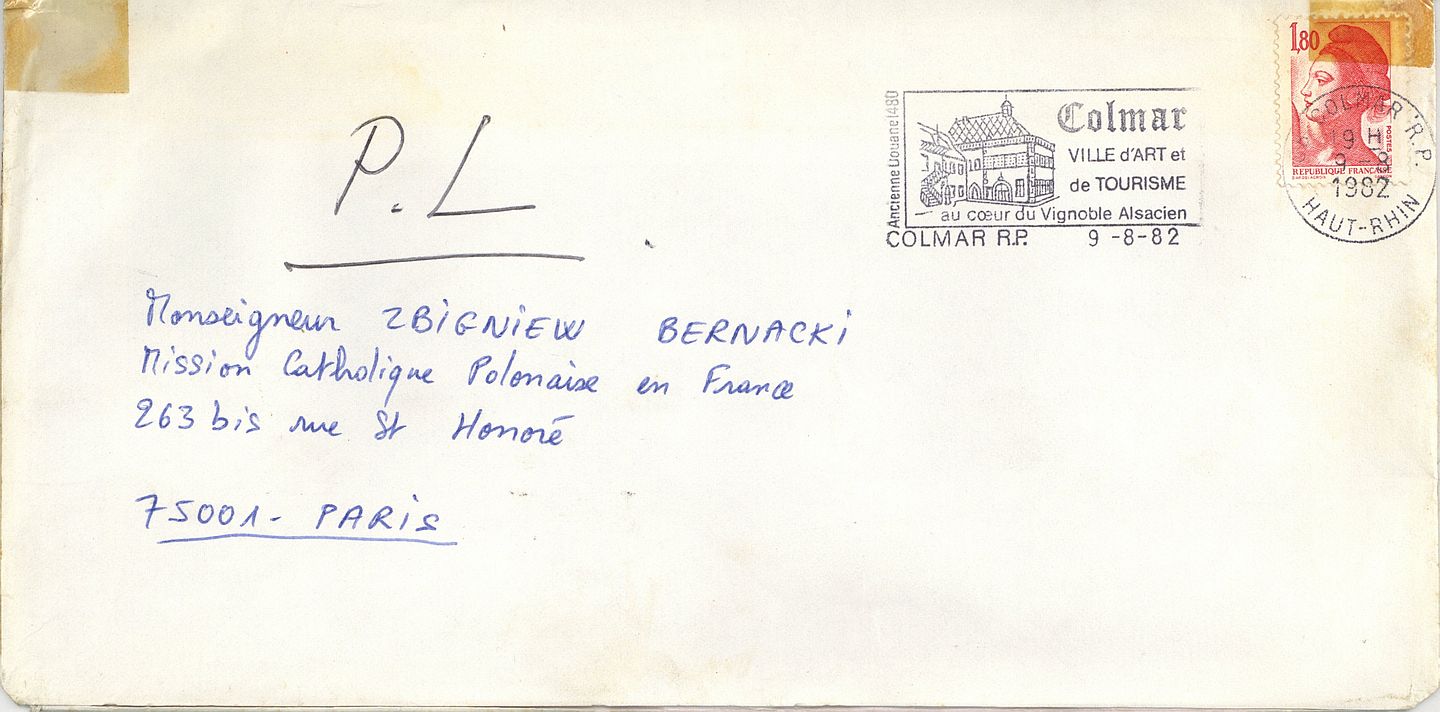 P.L
Monseigneur ZBIGNIEW BERNACKI
Mission Catholique Polonaise en France
263 bis rue St Honoré
75001- PARIS
Ancienne Douane 1480
Colmar
VILLE d'ART et
de TOURISME
au cœur du Vignoble Alsacien
COLMAR R.P. 9 -8-82
1,80
POSTES
REPUBLIQUE FRANÇAISE
COLMAR R.P.
19 H
9 -8
1982
HAUT-RHIN